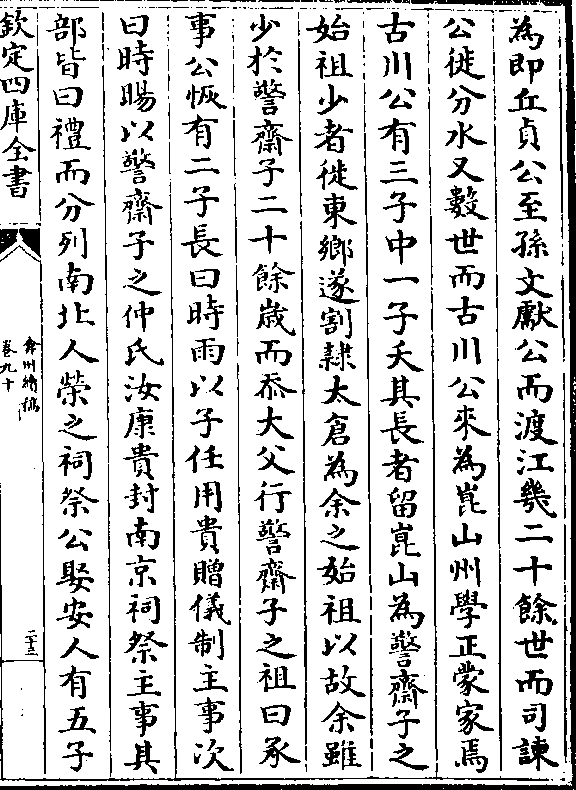 為即丘貞公至孫文獻公而渡江幾二十餘世而司諫
公徙分水又數世而古川公來為崑山州學正蒙家焉
古川公有三子中一子夭其長者留崑山為警齋子之
始祖少者徙東鄉遂割隷太倉為余之始祖以故余雖
少於警齋子二十餘歲而忝大父行警齋子之祖曰承
事公恢有二子長曰時雨以子任用貴贈儀制主事次
曰時暘以警齋子之仲氏汝康貴封南京祠祭主事其
部皆曰禮而分列南北人榮之祠祭公娶安人有五子
欽定四庫全書
弇州續稿
卷九十
二十三